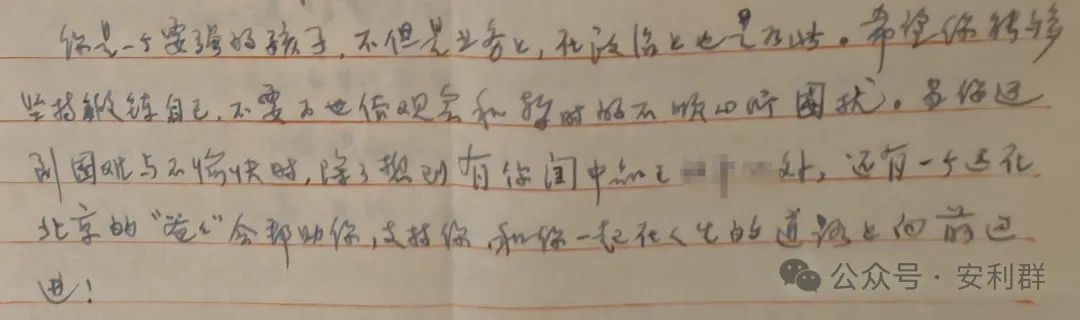 你是一个要强的孩子，不但是业务上，在政治上也是如此。希望你能够
坚持锻练自己，不要为世俗观念和暂时的不顺心所困扰。当你遇
到困难与不愉快时，除了想到有你闺中知己 外，还有一个远在
北京的“爸爸”会帮助你，支持你，和你一起在人生的道路上向前迈
进！
公众号·安利群